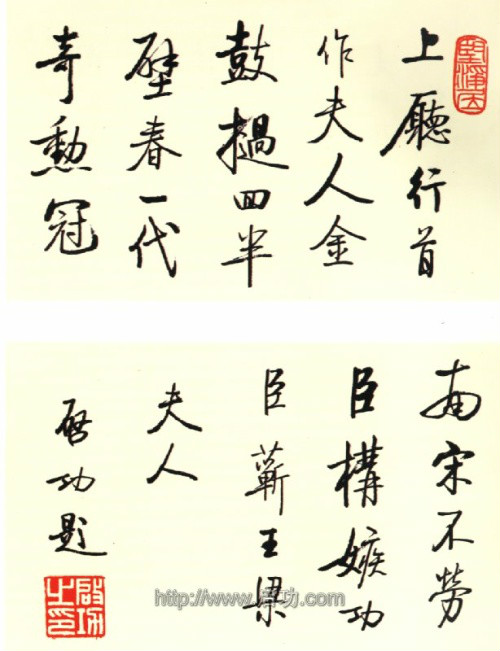 上廳行首
作夫人金
鼓撾回半
壁春一代
奇勳冠
南宋不勞
臣構嫉功
臣蘄王梁
夫人
啓功題
啟功之印
http://www.启功.com